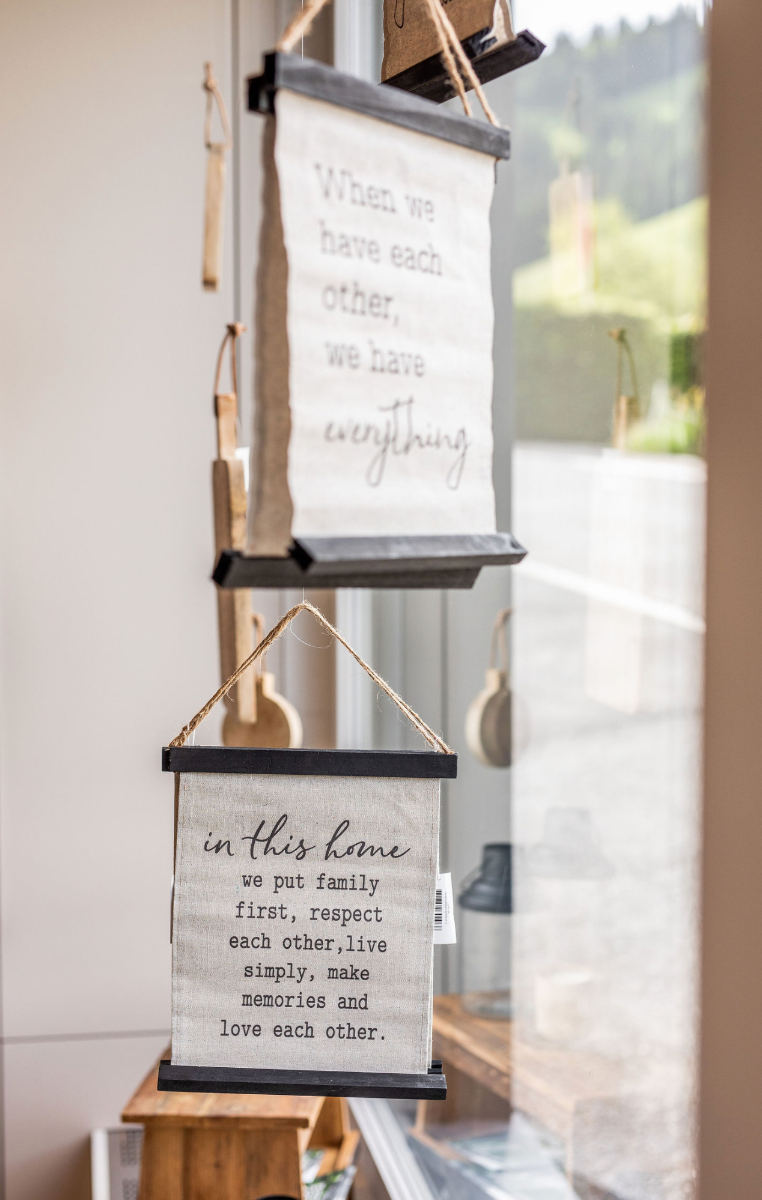 When we
have each
other,
we have
everything
in this home
we put family
first, respect
each other,live
simply, make
memories and
love each other.